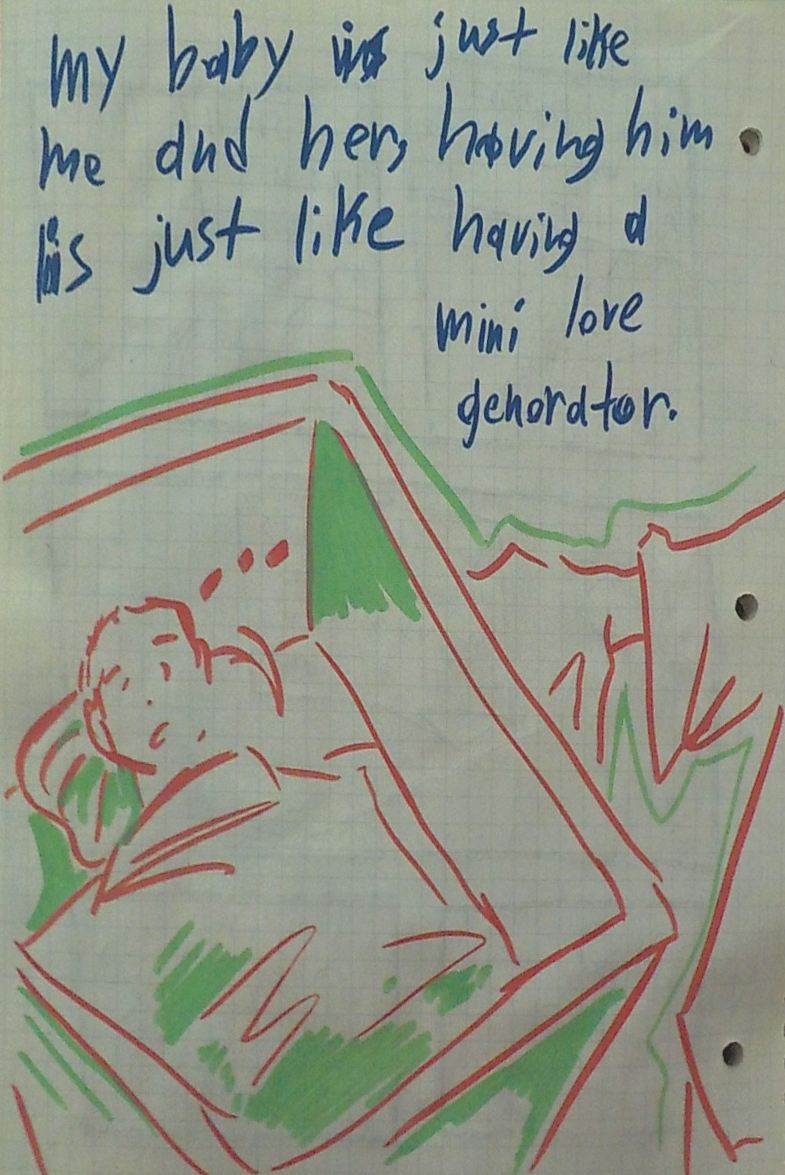 my baby is just like
me and her, having him
is just like having a
mini love
generator.